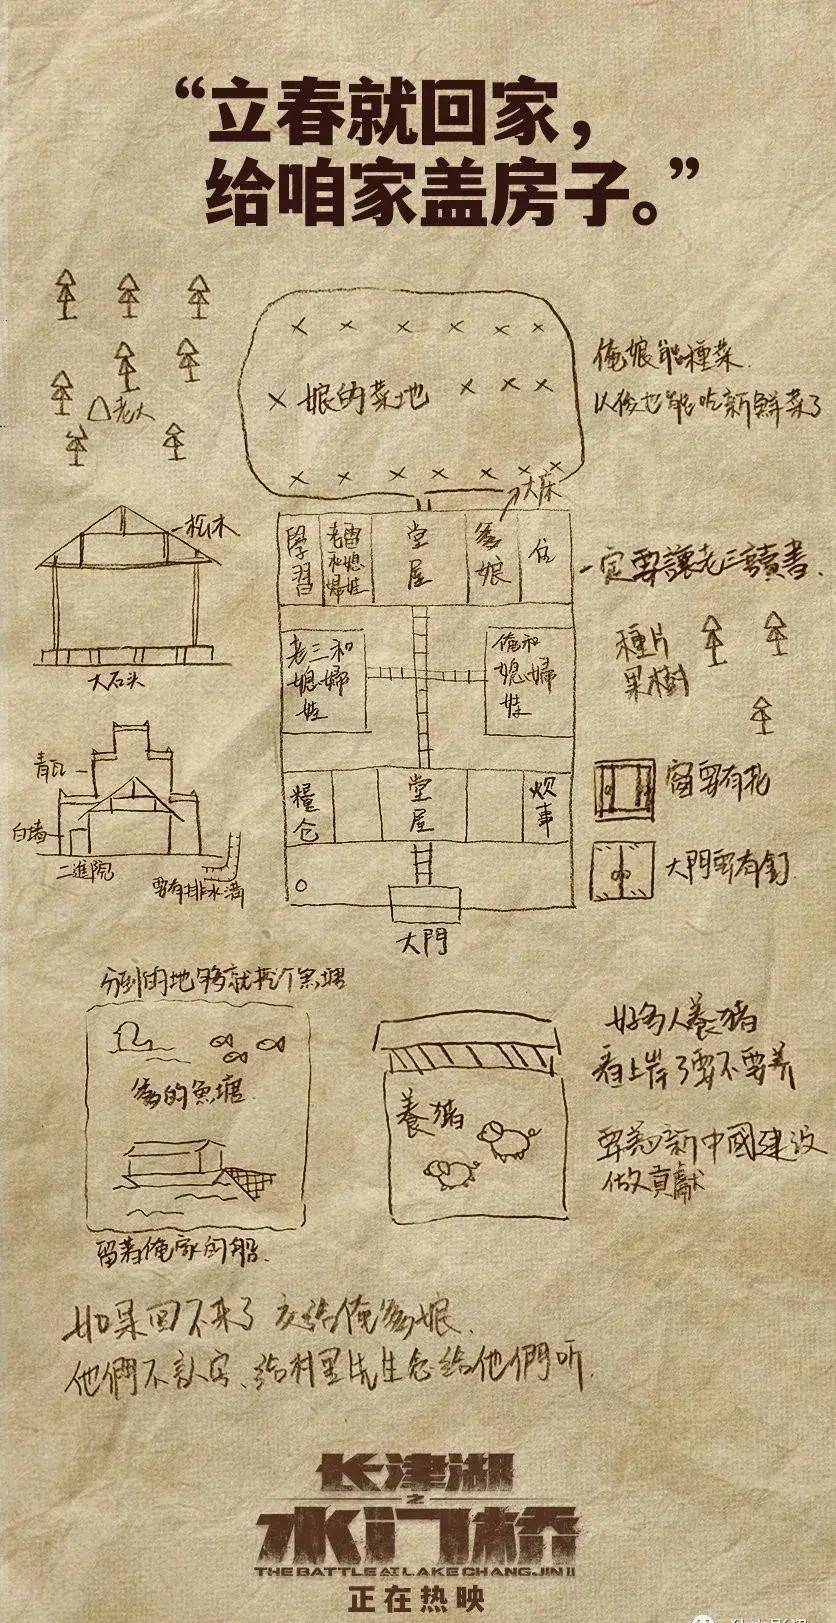 “立春就回家，
给咱家盖房子。”
俺娘能種菜
以後也能吃新鮮菜了
娘的菜地
老大
大床
松木
學習
堂屋
爹娘
住
一定要讓老三讀書
大石头
老三和
媳婦
娃
俺和
媳婦
娃
種片
果樹
青瓦
白墙
二進院
要有排水溝
糧仓
堂屋
炊事
窗要有花
大門要有釘
大門
分到的地够就挖个魚塘
爹的魚塘
留着俺家的船
養猪
好多人養猪
看上岸了要不要养
要為新中國建设
做貢獻
如果回不来了 交给俺爹娘
他們不认字、给村里先生念给他們听
长津湖
之
水门桥
THE BATTLE AT LAKE CHANGJIN II
正在热映